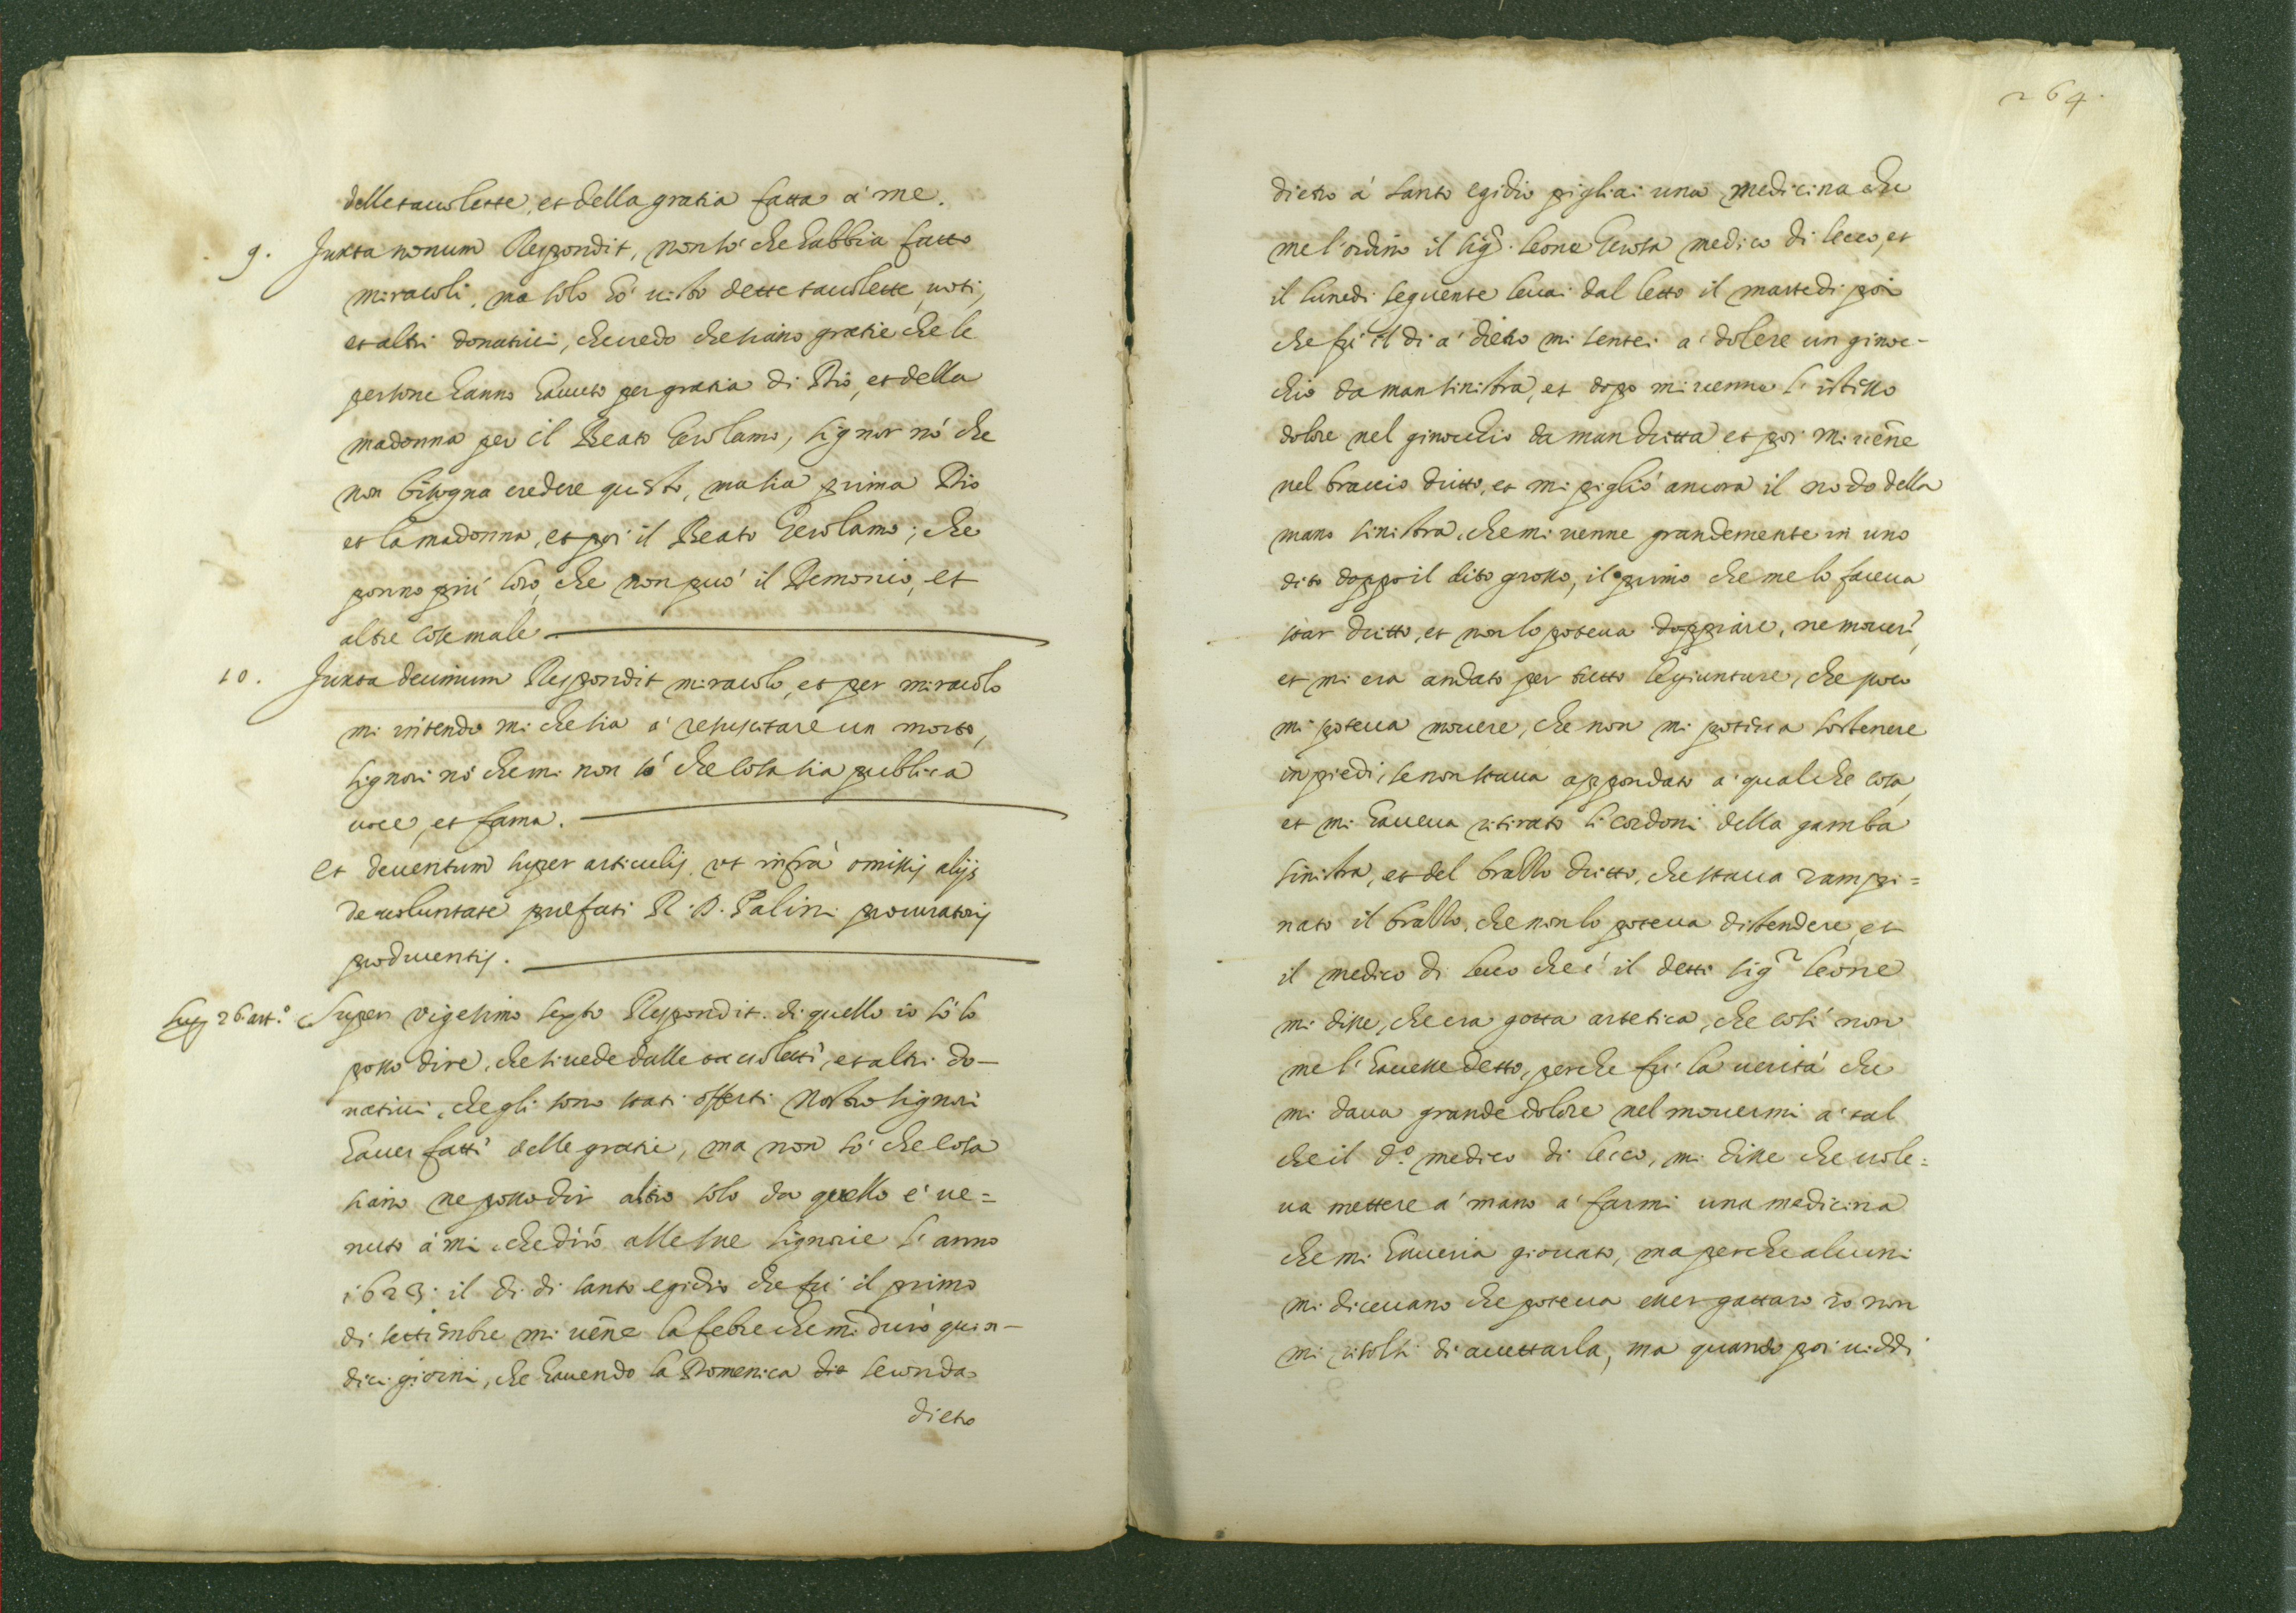 delle tauolette, et della gratia fatta à me.
9. Juxta nonum Respondit, non sò che habbia fatto
miracoli, ma solo hò uisto dette tauolette, uoti,
et altri donatiui, che credo che siano gratie che le
persone hanno hauuto per gratia di Dio, et della
madonna per il Beato Gerolamo, signor nò che
non bisogna credere questo, ma sia prima Dio
et la madonna, et poi il Beato Gerolamo; che
ponno più loro, che non può il Demonio, et
altre cose male
10. Juxta decimum Respondit miracolo, et per miracolo
mi intendo mi che sia à resuscitare un morto,
signori nò che mi non sò che cosa sia publica
uoce, et fama.
Et deuentum super articulis, ut infrà omissis alijs
de uoluntate prefati R. D. Palini procuratoris
producentis.
Sup 26. art.º Super vigesimo sexto Respondit. di quello io sò lo
posso dire, che si uede dalle tauoletti, et altri do-
natiui, che gli sono stati offerti Nostro signori
hauer fatti delle gratie, ma non sò che cosa
siano ne posso dir altro solo da quello è ue=
nuto à mi che dirò alle sue signorie l'anno
1623: il di di santo egidio che fù il primo
di settembre mi uēne la febre che mi durò quin-
dici giorni, che hauendo la Domenica die seconda
dietro
264.
dietro à santo egidio pigliai una medicina che
me l'ordinò il sigr. leone Gerosa medico di lecco, et
il lunedi seguente leuai dal letto il martedi poi
che fù il di à dietro mi sentei à dolere un ginoc-
chio da man sinistra, et dopo mi uenne l'istesso
dolore nel ginocchio da man dritta et poi mi uēne
nel braccio dritto, et mi pigliò ancora il nodo della
mano sinistra, che mi uenne grandemente in uno
dito doppo il dito grosso, il primo che me lo faceua
star dritto, et non lo poteua doppiare, ne mouer,
et mi era andato per tutto le giunture, che poco
mi poteua mouere, che non mi poteua sostenere
in piedi, se non staua appondato à qualche cosa,
et mi haueua ritirato li cordoni della gamba
sinistra, et del brasso dritto, che staua rampi=
nato il brasso, che non lo poteua distendere, et
il medico di lecco che è il detti sigr leone
mi disse, che era gotta artetica, che così non
me l'hauesse detto, perche fù la uerità che
mi daua grande dolore nel mouermi à tal
che il d.º medico di lecco, mi disse che uole=
ua mettere à mano à farmi una medicina
che mi haueria giouato, ma perche alcuni
mi diceuano che poteua esser gattaro io non
mi risolsi di accettarla, ma quando poi uiddi